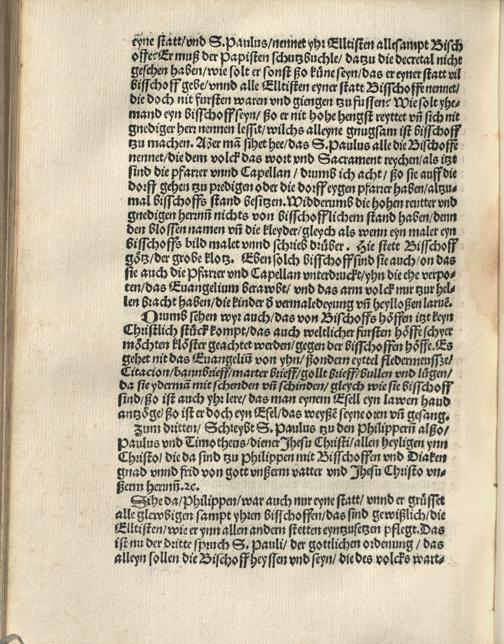 eyne statt/vnd S. Paulus/nennet yhr Elltisten allesampt Bisch
offe. Er muß der Papisten schutzbuchle/ dazu die decretal nicht
gesehen haben/wie solt er sonst ßo küne seyn/das er eyner statt vil
bisschoff gebe/vnnd alle Elltisten eyner statt Bisschoffe nennet/
die doch nit fursten waren vnd giengen tzu fussen? Wie solt yhe-
mand eyn bisschoff seyn/ ßo er nit hohe hengst reyttet vñ sich nit
gnediger herr nennen lessit/wilchs alleyne gnugsam ist bisschoff
tzu machen. Aber mā sihet hie/das S. Paulus alle die Bisschoffe
nennet/die dem volck das wort vnd Sacrament reychen/als itzt
sind die pfarrer vnnd Capellan / drumb ich acht/ ßo sie auff die
dorff gehen zu predigen oder die dorff eygen pfarrer haben/altzu-
mal bisschoffs stand besitzen. Widderumb die hohen reutter vnd
gnedigen hernñ nichts von bisschofflichem stand haben/denn
den blossen namen vñ die kleyder/gleych als wenn eyn maler eyn
bisschoffs bild malet vnnd schrieb drüber. Hie stett Bisschoff
götz/der grobe klotz. Eben solch bisschoff sind sie auch/on das
sie auch die Pfarrer vnd Capellan vnterdruckt/yhn die ehe verpo-
ten/das Euangelium berawbt/ vnd das arm volck nur tzur hel-
len bracht haben/die kinder d̕ vermaledeyung vñ heylloßen larue.
Drumb sehen wyr auch/das von Bisschoffs höffen itzt keyn
Christlich stück kompt/das auch weltlicher fursten höffe schyer
möchten klöster geachtet werden/gegen der bisschoffen höffe. Es
gehet nit das Euangeliū von yhn/ ßondern eyttel fledermeußze/
Citacion/bannbrieff/marter brieff/gollt brieff/bullen vnd lügen/
da sie ydermā mit schenden vñ schinden/ gleych wie sie bisschoff
sind/ßo ist auch yhr lere/ das man eynem Esell eyn lawen haud
antzöge/ ßo ist er doch eyn Esel/das weyßze seyne orn vñ gesang.
Zum dritten/ Schreybt S. Paulus zu den Philippern̄ alßo/
Paulus vnd Timotheus/diener Jhesu Christi/ allen heyligen ynn
Christo/ die da sind zu Philippen mit Bisschoffen vnd Diaken
gnad vnnd frid von gott vnßerm vatter vnd Jhesu Christo vn-
ßerm hernñ. ꝛc.
Sihe da/Philippen/war auch nur eyne statt/ vnnd er grüsset
alle glewbigen sampt yhren bisschoffen/das sind gewißlich/die
Elltisten/wie er ynn allen andern stetten eyntzusetzen pflegt. Das
ist nu der dritte spruch S. Pauli/ der gottlichen ordenung / das
alleyn sollen die Bisschoff heyssen vnd seyn/ die des volcks wart-